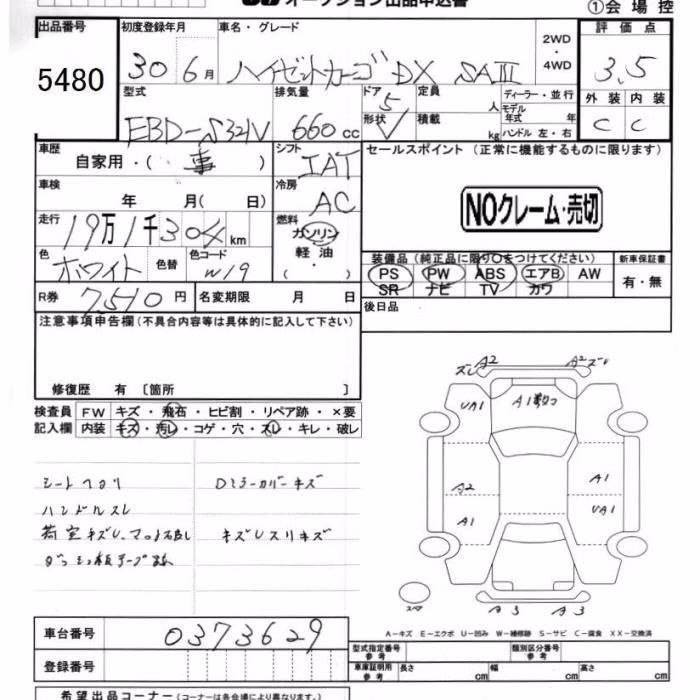 オークション出品申込書
①会場控
出品番号 初度登録年月 車名・グレード 2WD・4WD 評価点
5480 30 6月 ハイゼットカーゴ DX SAIII 3.5
型式 排気量 ドア 定員 ディーラー・並行 外装 内装
5 人 モデル年式 年
EBD-S321V 660cc 形状 積載 kg ハンドル 左・右 C C
車歴 自家用・(事) シフト IAT セールスポイント(正常に機能するものに限ります)
車検 年 月(日) 冷房 AC NOクレーム・売切
走行 19万1千304km 燃料 ガソリン
軽油
色 ホワイト 色替 色コード W19 装備品(純正品に限り○をつけてください) 新車保証書
PS PW ABS エアB AW 有・無
SR ナビ TV カワ
R券 7,510円 名変期限 月 日 後日品
注意事項申告欄(不具合内容等は具体的に記入して下さい)
修復歴 有〔箇所 〕
検査員記入欄 FW キズ・飛石・ヒビ割・リペア跡・×要
内装 キズ・汚レ・コゲ・穴・スレ・キレ・破レ
ズレ A2 A2 ズレ
UA1 A1
シートヘタリ Dミラーカバーキズ A2 A1
ハンドルスレ A1 UA1
荷室キズU キズUスリキズ
スペア A3 A3
車台番号 0373629
A-キズ E-エクボ U-凹み W-補修跡 S-サビ C-腐食 XX-交換済
登録番号 型式指定番号 参考 類別区分番号 参考
車庫証明用 参考 長さ cm 幅 cm 高さ cm
希望出品コーナー(コーナーは各会場により異なります)